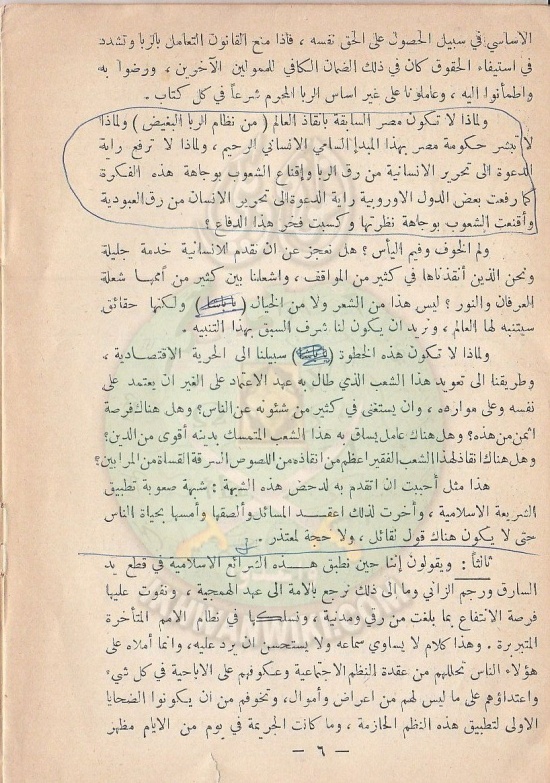 الاساسي في سبيل الحصول على الحق نفسه ، فاذا منع القانون التعامل بالربا وتشدد
في استيفاء الحقوق كان في ذلك الضمان الكافي للممولين الآخرين ، ورضوا به
واطمأنوا اليه ، وعاملونا على غير اساس الربا المحرم شرعاً في كل كتاب .
ولماذا لا تكون مصر السابقة بانقاذ العالم ( من نظام الربا البغيض ) ولماذا
لا تبشر حكومة مصر بهذا المبدإ السامي الانساني الرحيم ، ولماذا لا ترفع راية
الدعوة الى تحرير الانسانية من رق الربا وإقناع الشعوب بوجاهة هذه الفكرة
كما رفعت بعض الدول الاوروبية راية الدعوة الى تحرير الانسان من رق العبودية
وأقنعت الشعوب بوجاهة نظرتها وكسبت فخر هذا الدفاع ؟
ولم الخوف وفيم اليأس ؟ هل نعجز عن ان نقدم الانسانية خدمة جليلة
ونحن الذين أنقذناها في كثير من المواقف ، واشعلنا بين كثير من أممها شعلة
العرفان والنور ؟ ليس هذا من الشعر ولا من الخيال ( ) ولكنها حقائق
سيتنبه لها العالم ، ونريد ان يكون لنا شرف السبق بهذا التنبيه .
ولماذا لا تكون هذه الخطوة ( ) سبيلنا الى الحرية الاقتصادية ،
وطريقنا الى تعويد هذا الشعب الذي طال به عهد الاعتماد على الغير ان يعتمد على
نفسه وعلى موارده ، وان يستغنى في كثير من شئونه عن الناس ؟ وهل هناك فرصة
اثمن من هذه ؟ وهل هناك عامل يساق به هذا الشعب المتمسك بدينه أقوى من الدين ؟
وهل هناك انقاذ لهذا الشعب الفقير اعظم من انقاذه من اللصوص السرقة القساة من المرابين ؟
هذا مثل أحببت ان اتقدم به لدحض هذه الشبهة : شبهة صعوبة تطبيق
الشريعة الاسلامية ، وأخرت لذلك اعقد المسائل وألصقها وأمسها بحياة الناس
حتى لا يكون هناك قول لقائل ، ولا حجة لمعتذر .
ثالثاً : ويقولون إننا حين نطبق هذه الشرائع الاسلامية في قطع يد
السارق ورجم الزاني وما الى ذلك نرجع بالامة الى عهد الهمجية ، ونفوت عليها
فرصة الانتفاع بما بلغت من رقي ومدنية ، ونسلكها في نظام الامم المتأخرة
المتبربرة . وهذا كلام لا يساوي سماعه ولا يستحسن ان يرد عليه ، وانما أملاه على
هؤلاء الناس تحللهم من عقدة النظم الاجتماعية وعكوفهم على الاباحية في كل شيء
واعتداؤهم على ما ليس لهم من اعراض وأموال ، وتخوفهم من ان يكونوا الضحايا
الاولى لتطبيق هذه النظم الحازمة ، وما كانت الجريمة في يوم من الايام مظهر
— ٦ —